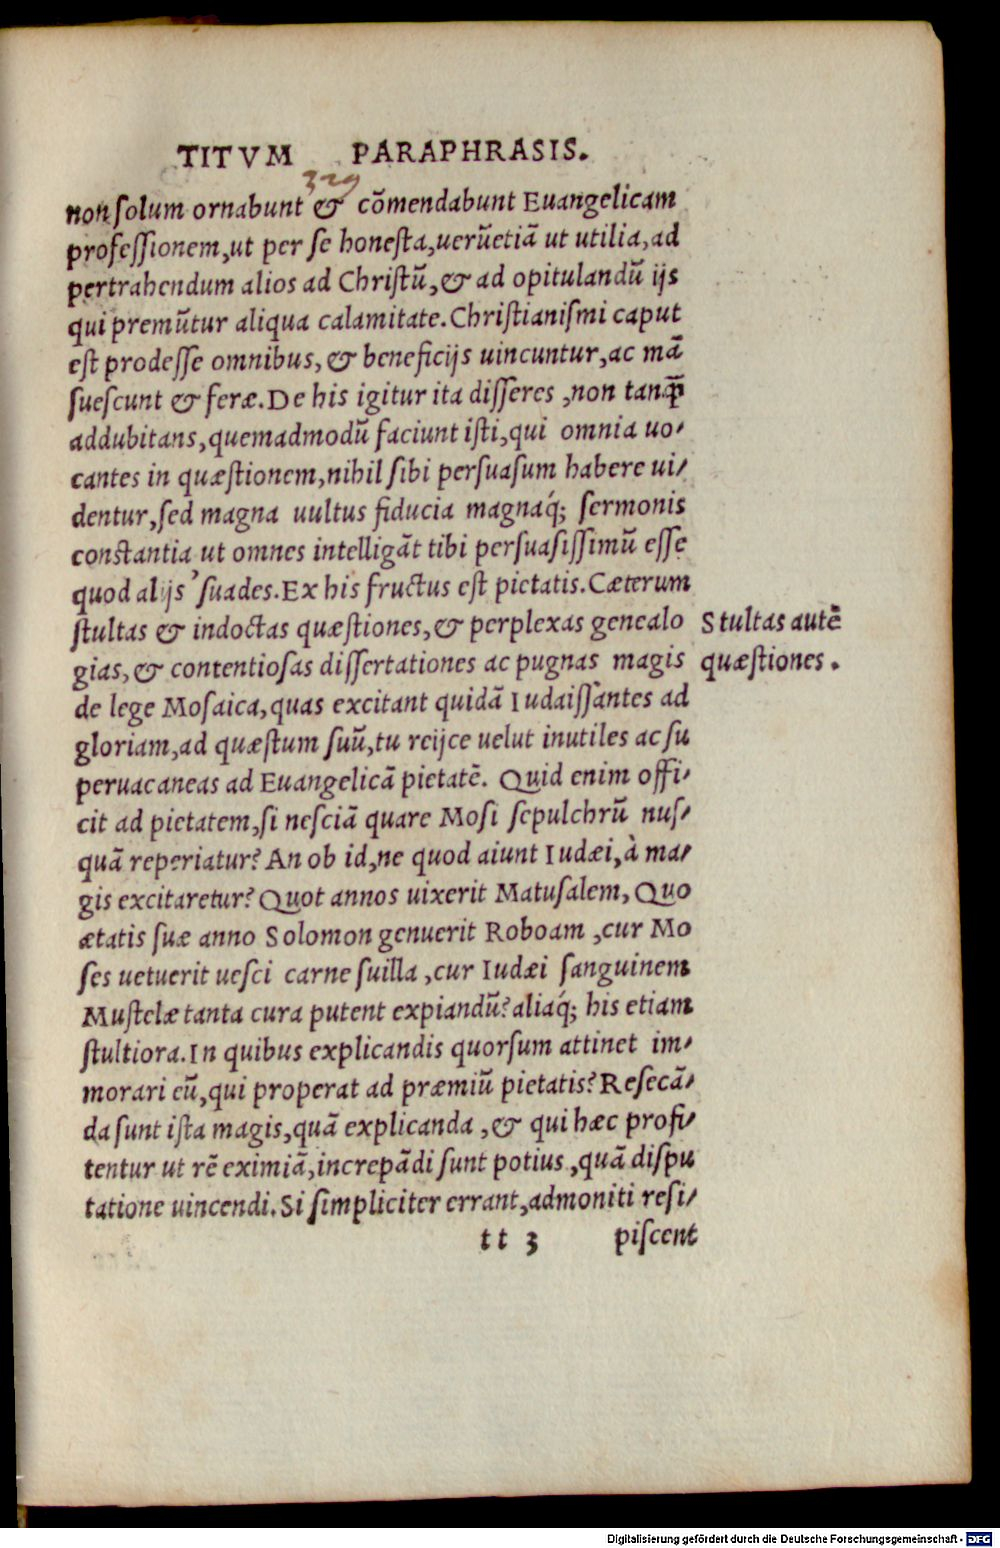 TITVM PARAPHRASIS.
329
non ſolum ornabunt & cōmendabunt Euangelicam
profeſſionem,ut per ſe honeſta,uerūetiā ut utilia,ad
pertrahendum alios ad Chriſtū,& ad opitulandū ijs
qui premūtur aliqua calamitate.Chriſtianiſmi caput
eſt prodeſſe omnibus,& beneficijs uincuntur,ac mā
ſueſcunt & feræ.De his igitur ita diſſeres ,non tanq̄
addubitans,quemadmodū faciunt iſti,qui omnia uo-
cantes in quæſtionem,nihil ſibi perſuaſum habere ui-
dentur,ſed magna uultus fiducia magnaq́; ſermonis
conſtantia ut omnes intelligāt tibi perſuaſiſſimū eſſe
quod alijs ſuades.Ex his fructus eſt pietatis.Cæterum
ſtultas & indoctas quæſtiones,& perplexas genealo
Stultas autē
gias,& contentioſas diſſertationes ac pugnas magis
quæſtiones.
de lege Moſaica,quas excitant quidā Iudaiſſantes ad
gloriam,ad quæſtum ſuū,tu reijce uelut inutiles ac ſu
peruacaneas ad Euangelicā pietatē. Quid enim offi-
cit ad pietatem,ſi neſciā quare Moſi ſepulchrū nuſ-
quā reperiatur? An ob id,ne quod aiunt Iudæi,à ma-
gis excitaretur? Quot annos uixerit Matuſalem, Quo
ætatis ſuæ anno Solomon genuerit Roboam ,cur Mo
ſes uetuerit ueſci carne ſuilla ,cur Iudæi ſanguinem
Muſtelæ tanta cura putent expiandū? aliaq́; his etiam
ſtultiora.In quibus explicandis quorſum attinet im-
morari eū,qui properat ad præmiū pietatis? Reſecā-
da ſunt iſta magis,quā explicanda ,& qui hæc profi-
tentur ut rē eximiā,increpādi ſunt potius ,quā diſpu
tatione uincendi.Si ſimpliciter errant,admoniti reſi-
tt 3 piſcent
Digitalisierung gefördert durch die Deutsche Forschungsgemeinschaft - DFG